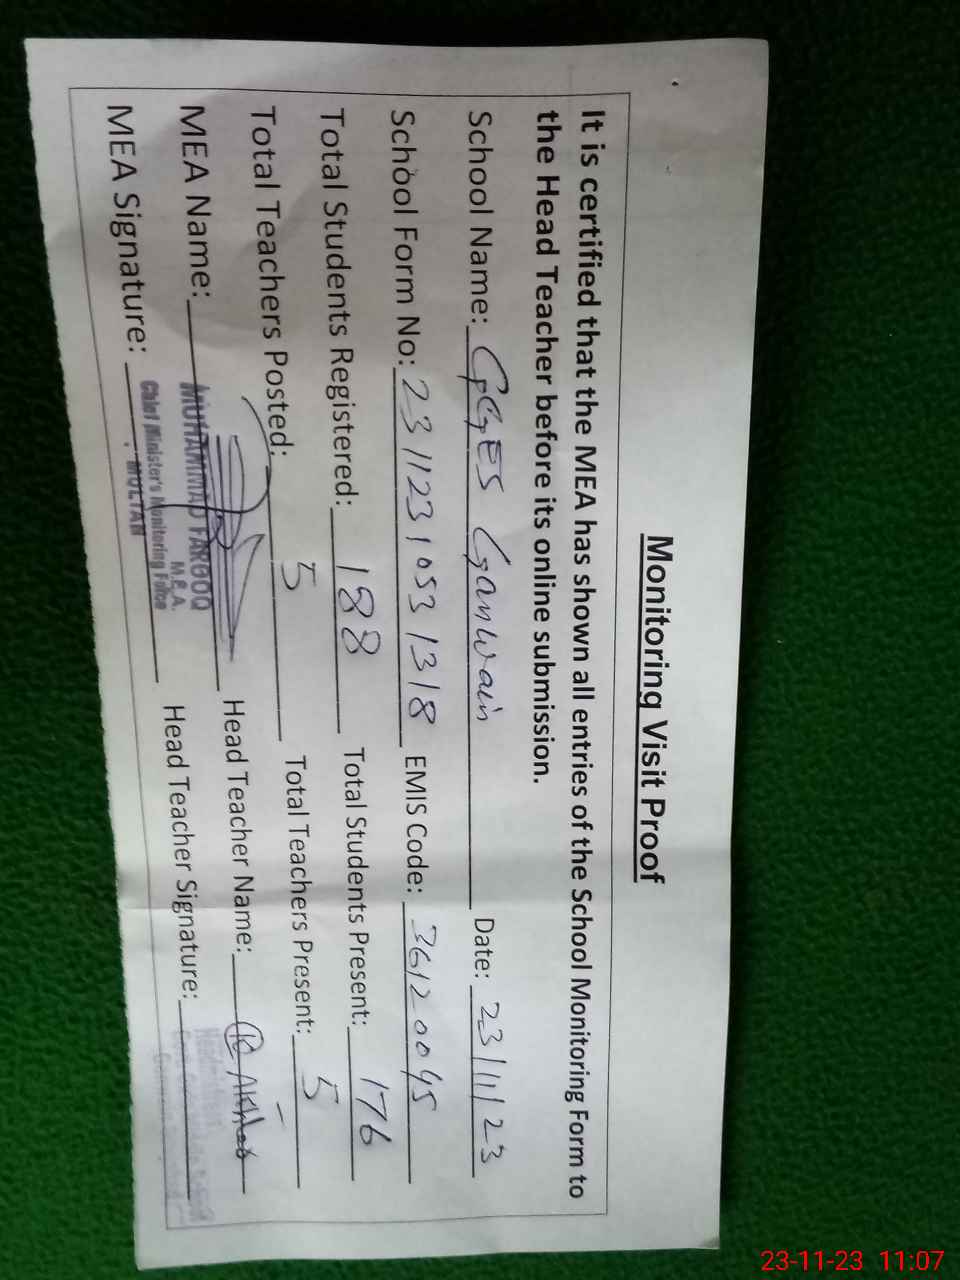 Monitoring Visit Proof
It is certified that the MEA has shown all entries of the School Monitoring Form to
the Head Teacher before its online submission.
School Name: GGES Ganwain Date: 23/11/23
School Form No: 23112310531318 EMIS Code: 36120045
Total Students Registered: 188 Total Students Present: 176
Total Teachers Posted: 5 Total Teachers Present: 5
MEA Name: MUHAMMAD FAROOQ Head Teacher Name:
M.E.A.
MEA Signature: Chief Minister's Monitoring Force Head Teacher Signature:
MULTAN
23-11-23 11:07